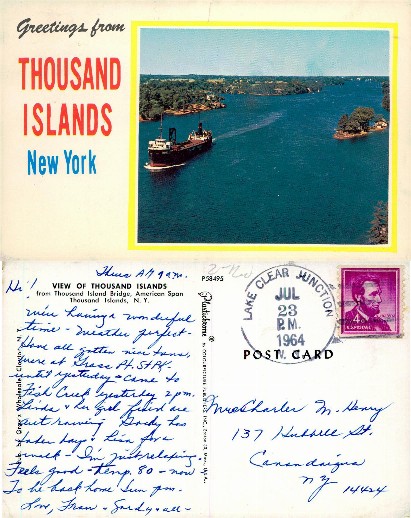 Greetings from
THOUSAND
ISLANDS
New York
Thurs A.M. 9 a.m.
P58495
Hi!
VIEW OF THOUSAND ISLANDS
from Thousand Island Bridge, American Span
Thousand Islands, N. Y.
We're having a wonderful
time - weather perfect.
Have all gotten nice tans,
were at Grass Pt. St. Pk.
until yesterday - came to
Fish Creek yesterday 2 p.m.
Linda & her girl friend are
out running Gordy has
taken day Lisa for a
walk - I'm just relaxing.
Feels good - temp. 80 - now
To be back home Sun p.m.
Love, Fran - Gordy & all -
Plastichrome ®
LAKE CLEAR JUNCTION
JUL
23
P.M.
1964
N. Y.
U.S. POSTAGE
POST CARD
Mrs Charles M. Henry
137 Hubbell St.
Canandaigua
NY
14424